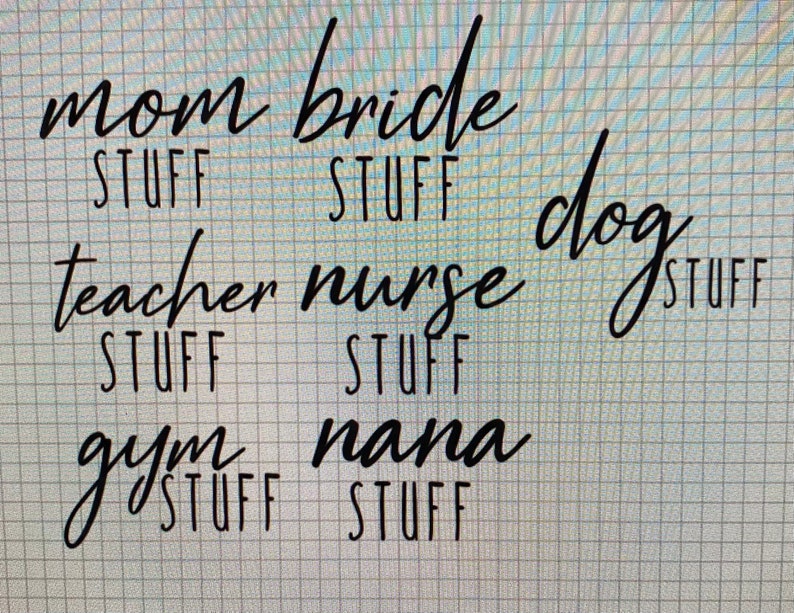 mom
STUFF
bride
STUFF
dog
STUFF
teacher
STUFF
nurse
STUFF
gym
STUFF
nana
STUFF